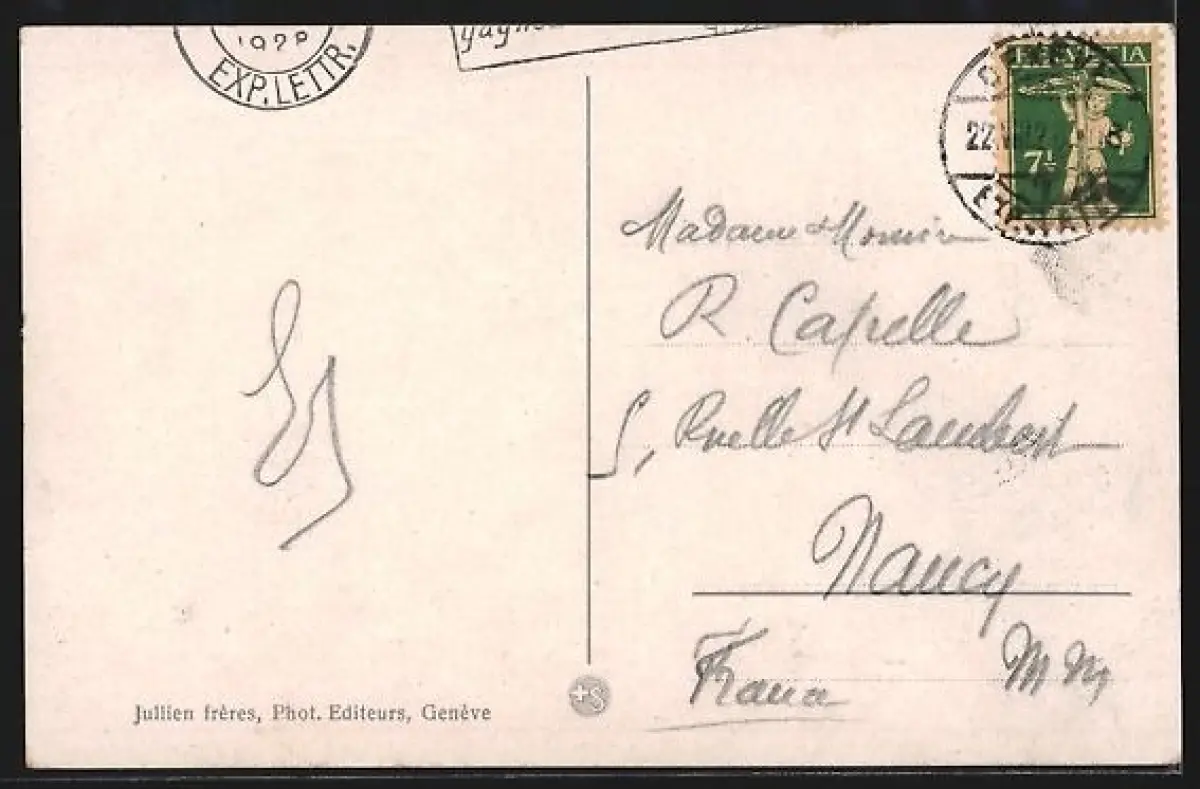 1928
EXP. LETTR.
HELVETIA
7½
22.
Madame & Monsieur
R. Capelle
5, Ruelle St Lambert
Nancy
France
M M
Jullien frères, Phot. Editeurs, Genève